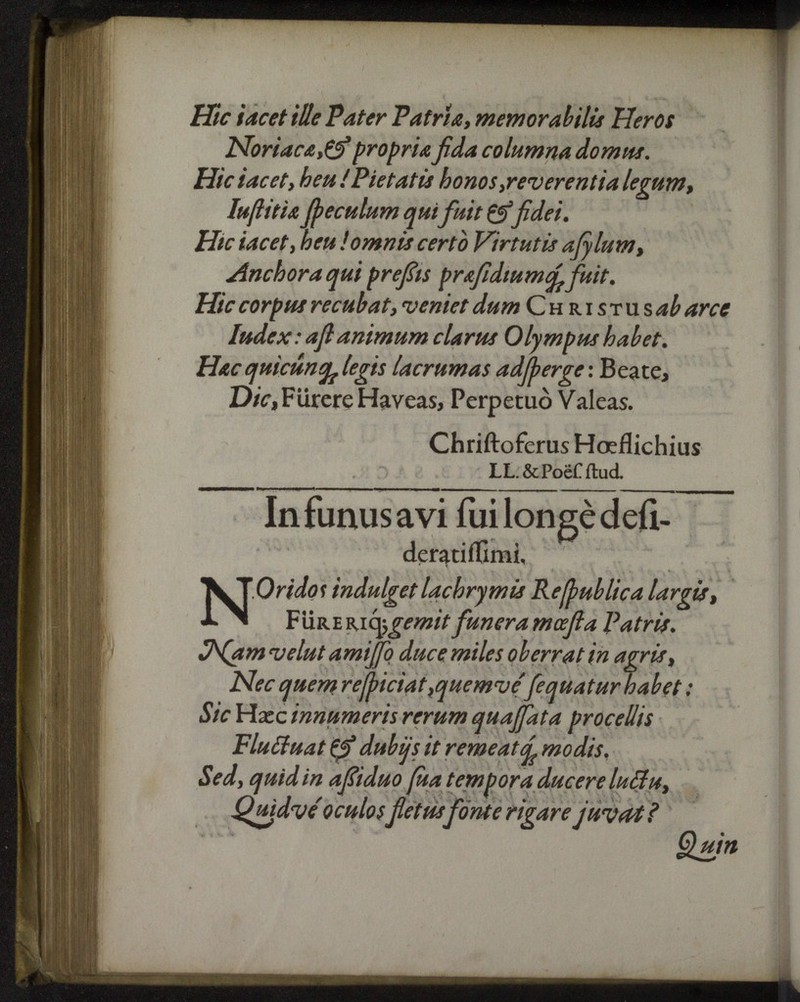 Hic iacet ille Pater Patriæ, memorabilis Heros
Noriacæ, & propriæ fida columna domus.
Hic iacet, heu! Pietatis honos, reverentia legum,
Iuſtitiæ ſpeculum qui fuit & fidei.
Hic iacet, heu! omnis certò Virtutis aſylum,
Anchora qui preſsis præſidiumq́ꝫ fuit.
Hic corpus recubat, veniet dum CHRISTUS ab arce
Iudex: aſt animum clarus Olympus habet.
Hæc quicúnqꝫ legis lacrumas adſperge: Beate,
Dic, Fürere Haveas, Perpetuò Valeas.
Chriſtoferus Hœflichius
LL. & Poëſ. ſtud.
In funus avi ſui longè deſi-
deratiſſimi.
NOridos indulget lachrymis Reſpublica largis,
FüRERIq́ꝫ gemit funera mœſta Patris.
Nam velut amiſſo duce miles oberrat in agris,
Nec quem reſpiciat, quemvé ſequatur habet:
Sic Hæc innumeris rerum quaſſata procellis
Fluctuat & dubijs it remeatq́ꝫ modis.
Sed, quid in aſsiduo ſua tempora ducere luctu,
Quidvé oculos fletus fonte rigare juvat?
Quin